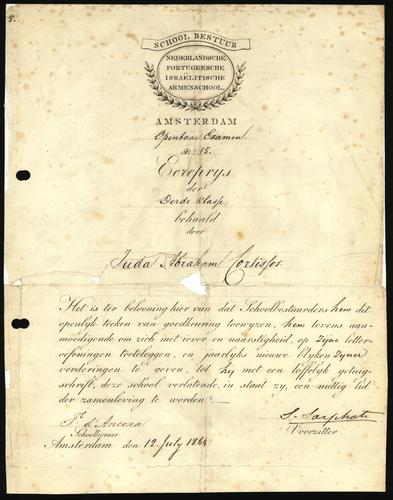 5.
SCHOOL BESTUUR
NEDERLANDSCHE
PORTUGEESCHE
ISRAELITISCHE
ARMENSCHOOL.
AMSTERDAM
Openbaar Examen.
15.
Eereprys
der
Derde Klasse
behaald
door
Juda Abraham Cortissos.
Het is ter belooning hier van dat Schoolbestuurders hem dit
openlyk teeken van goedkeuring toewyzen, hem tevens aan-
moedigende om zich met iever en naarstigheid, op zijne letter-
oefeningen toeteleggen, en jaarlyks nieuwe blyken zyner
vorderingen te geven, tot hij met een loffelyk getuig-
schrift, deze school verlatende, in staat zy, een nuttig lid
der zamenleving te worden.
d'Ancona
Schoolleeraar
S. Sarphati
Voorzitter.
Amsterdam den 12 July 1864